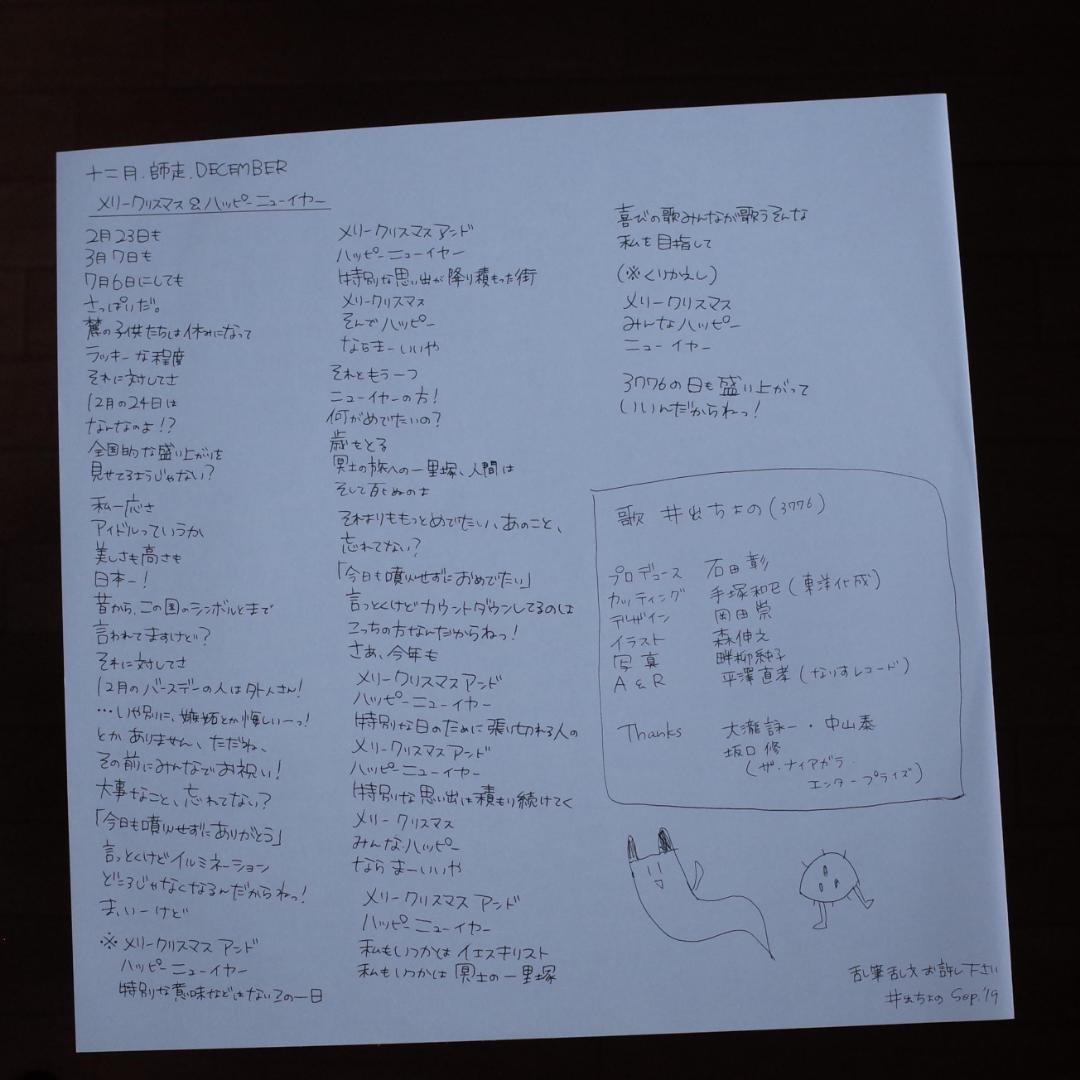 十二月.師走.DECEMBER
メリークリスマス&ハッピーニューイヤー
2月23日も
3月7日も
7月6日にしても
さっぱりだ。
麓の子供たちは休みになって
ラッキーな程度
それに対してさ
12月の24日は
なんなのよ!?
全国的な盛り上がりを
見せてるようじゃない?
私一応さ
アイドルっていうか
美しさも高さも
日本一!
昔から、この国のシンボルとまで
言われてますけど?
それに対してさ
12月のバースデーの人は外人さん!
…いや別に、嫉妬とか悔しいーっ!
とかありません、ただね、
その前にみんなでお祝い!
大事なこと、忘れてない?
「今日も噴火せずにありがとう」
言っとくけどイルミネーション
どころじゃなくなるんだからねっ!
ま、いーけど
※メリークリスマス アンド
ハッピーニューイヤー
特別な意味などはないこの一日
メリークリスマスアンド
ハッピーニューイヤー
特別な思い出が降り積もった街
メリークリスマス
そんでハッピー
ならまーいいや
それともう一つ
ニューイヤーの方!
何がめでたいの?
歳もとる
冥土の旅への一里塚、人間は
そして死ぬのよ
それよりももっとめでたい、あのこと、
忘れてない?
「今日も噴火せずにおめでたい」
言っとくけどカウントダウンしてるのは
こっちの方なんだからねっ!
さあ、今年も
メリークリスマス アンド
ハッピーニューイヤー
特別な日のために張り切れる人の
メリークリスマス アンド
ハッピーニューイヤー
特別な思い出は積もり続けてく
メリークリスマス
みんなハッピー
ならまーいいや
メリークリスマス アンド
ハッピーニューイヤー
私もいつかは イエスキリスト
私もいつかは 冥土の一里塚
喜びの歌みんなが歌うそんな
私を目指して
(※くりかえし)
メリークリスマス
みんなハッピー
ニューイヤー
3776の日も盛り上がって
いいんだからねっ!
歌 井出ちよの(3776)
プロデュース 石田彰
カッティング 手塚和巳(東洋化成)
デザイン 岡田崇
イラスト 森伸之
写真 畔柳純子
A&R 平澤直孝(なりすレコード)
Thanks 大瀧詠一・中山泰
坂口修
(ザ・ナイアガラ・
エンタープライズ)
乱筆乱文お許し下さい
井出ちよの Sep.'19